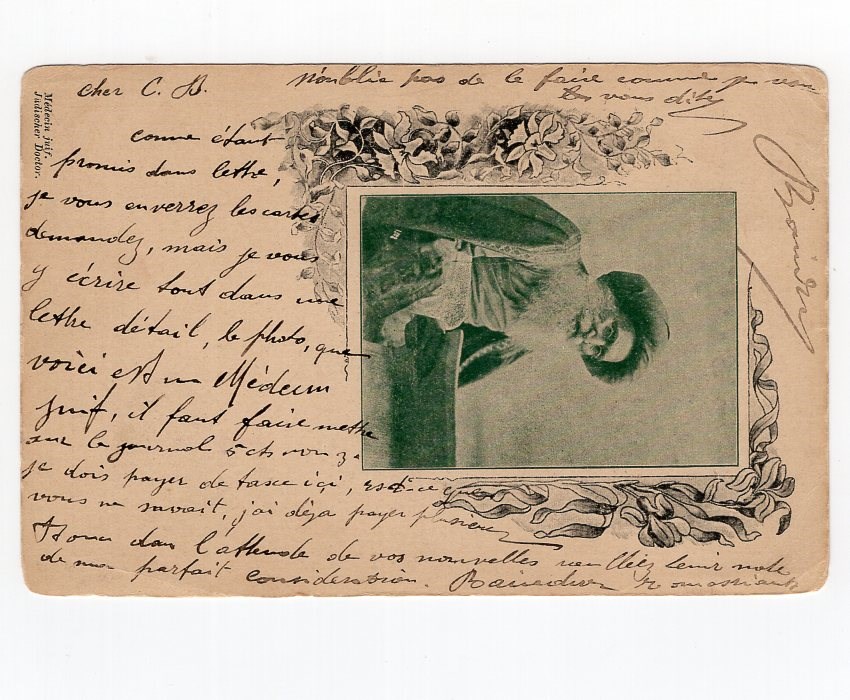 Médecin juif.
Jüdischer Doctor.
cher C. B.
N'oublie pas de le faire comme je
vous dit
comme étant
promis dans lettre,
je vous enverrez les cartes
demandez, mais je vous
y écrire tout dans une
lettre détail, la photo, que
voici est un Médecin
juif, il faut faire mettre
sur le journal 5 cts
je dois payer de taxe içi, est-ce que
vous ne savait, j'ai déja payer plusieurs
dans l'attende de vos nouvelles veuillez tenir note
de mon parfait consideration.